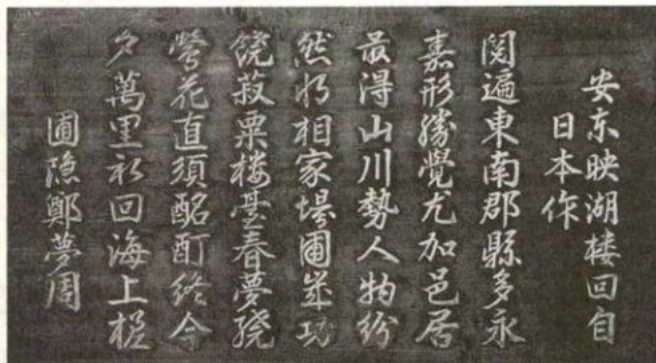 安东映湖楼回自
日本作
閱遍東南郡縣多永
嘉形勝覺尤加邑居
最得山川勢人物紛
然将相家場圃歲功
饒菽粟楼臺春夢繞
鶯花直須酩酊終今
夕萬里初回海上槎
圃隐鄭夢周